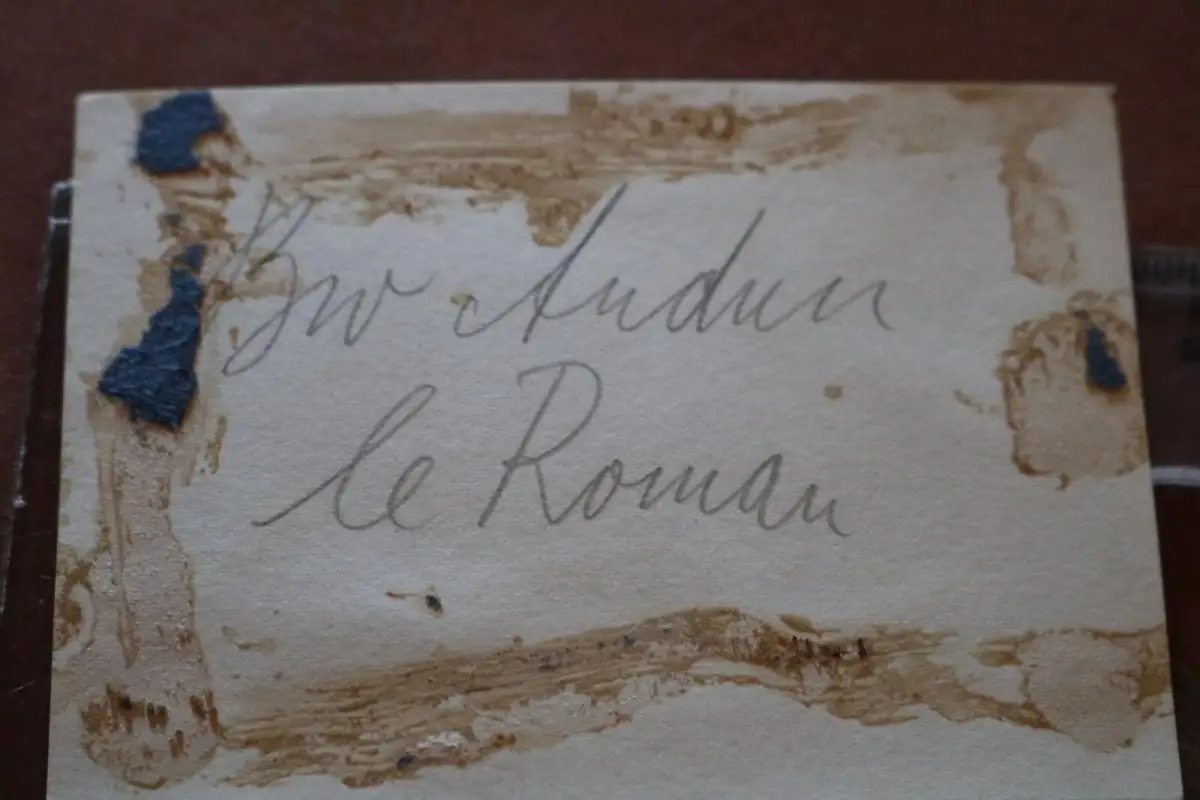 Bw Audun
le Roman